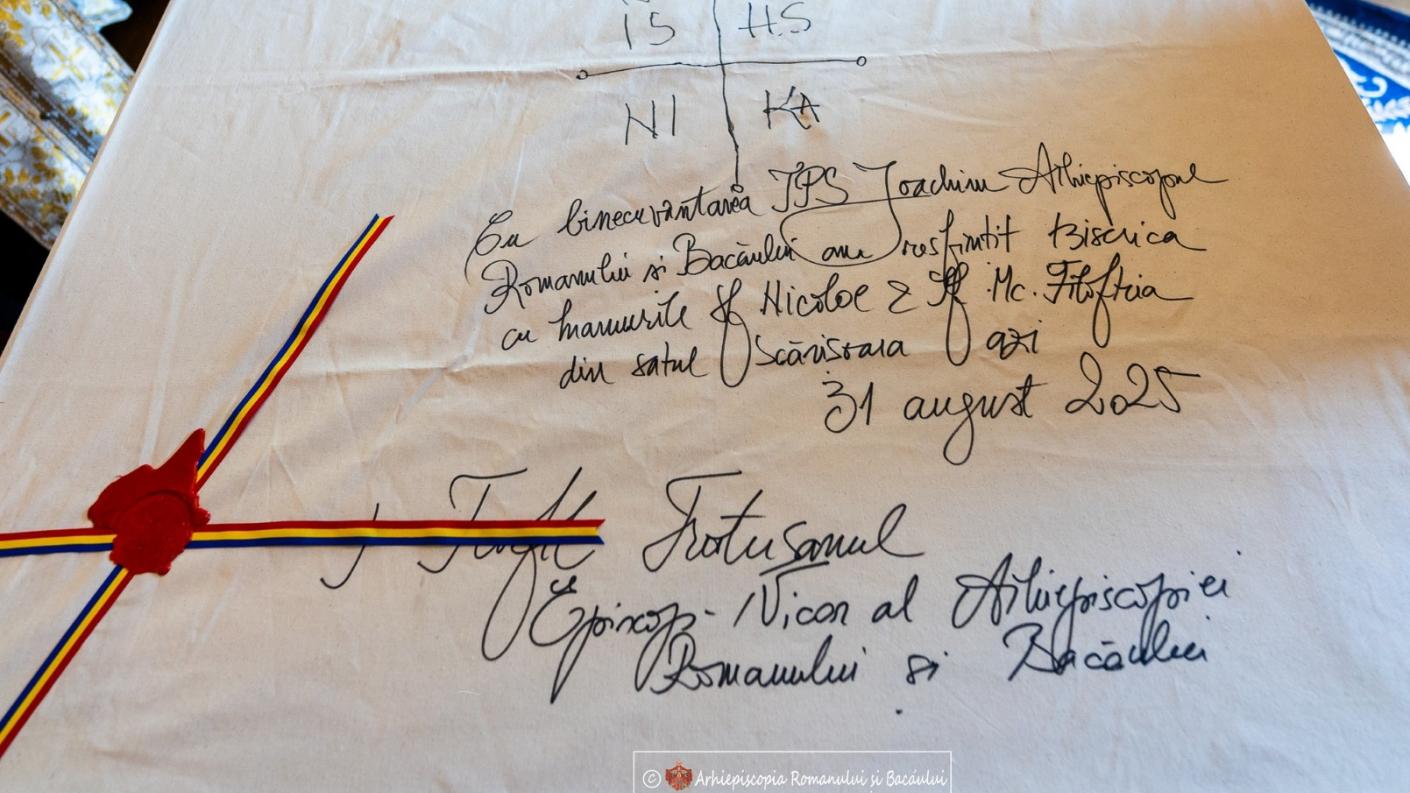 IS HS
NI KA
Cu binecuvântarea ÎPS Ioachim Arhiepiscopul
Romanului și Bacăului am resfințit Biserica
cu hramurile Sf Nicolae & Sf Mc. Filofteia
din satul Scărișoara azi
31 august 2025
Trotușanul
Episcop-Vicar al Arhiepiscopiei
Romanului și Bacăului
© Arhiepiscopia Romanului și Bacăului